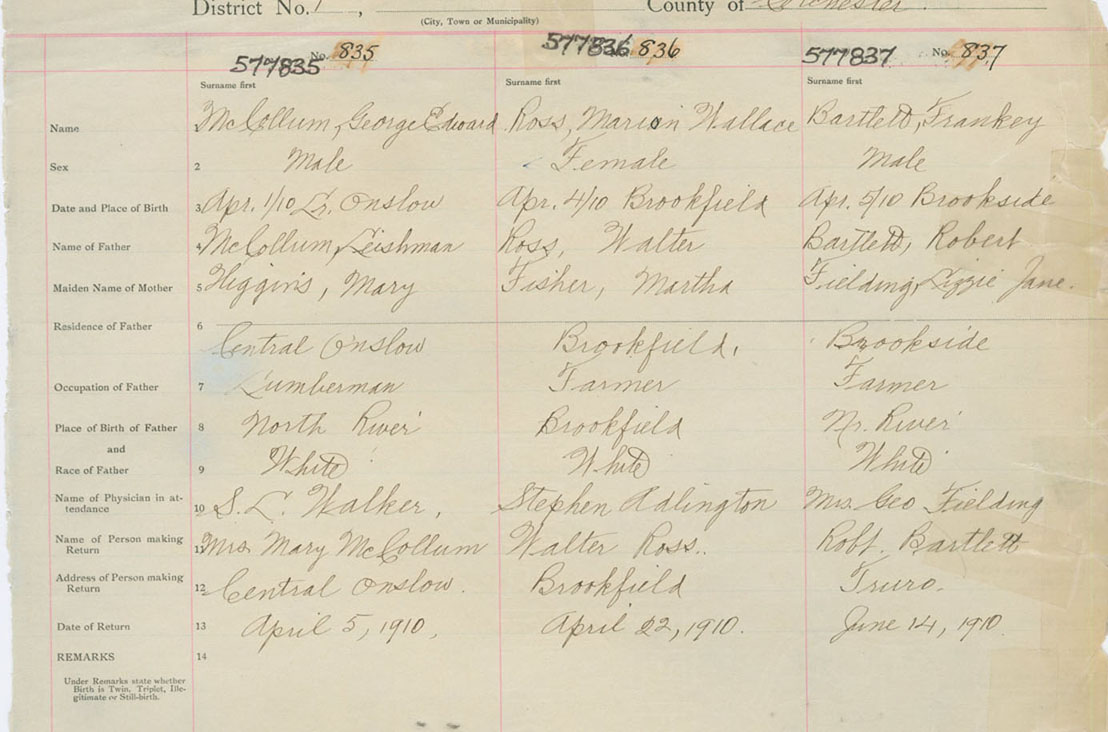 District No. 1, County of Colchester.
(City, Town or Municipality)
577835 No. 835 577836 836 577837 No. 837
Surname first Surname first Surname first
Name 1 McCollum, George Edward Ross, Marion Wallace Bartlett, Frankey
Sex 2 Male Female Male
Date and Place of Birth 3 Apr. 1/10 Onslow Apr. 4/10 Brookfield Apr. 5/10 Brookside
Name of Father 4 McCollum, Leishman Ross, Walter Bartlett, Robert
Maiden Name of Mother 5 Higgins, Mary Fisher, Martha Fielding, Lizzie Jane.
Residence of Father 6 Central Onslow Brookfield. Brookside
Occupation of Father 7 Lumberman Farmer Farmer
Place of Birth of Father 8 North River Brookfield Nr. River
and
Race of Father 9 White White White
Name of Physician in at-
tendance 10 S. L. Walker, Stephen Adlington Mrs. Geo Fielding
Name of Person making
Return 11 Mrs. Mary McCollum Walter Ross.. Robt. Bartlett
Address of Person making
Return 12 Central Onslow. Brookfield Truro.
Date of Return 13 April 5, 1910, April 22, 1910. June 14, 1910.
REMARKS 14
Under Remarks state whether
Birth is Twin, Triplet, Ille-
gitimate or Still-birth.